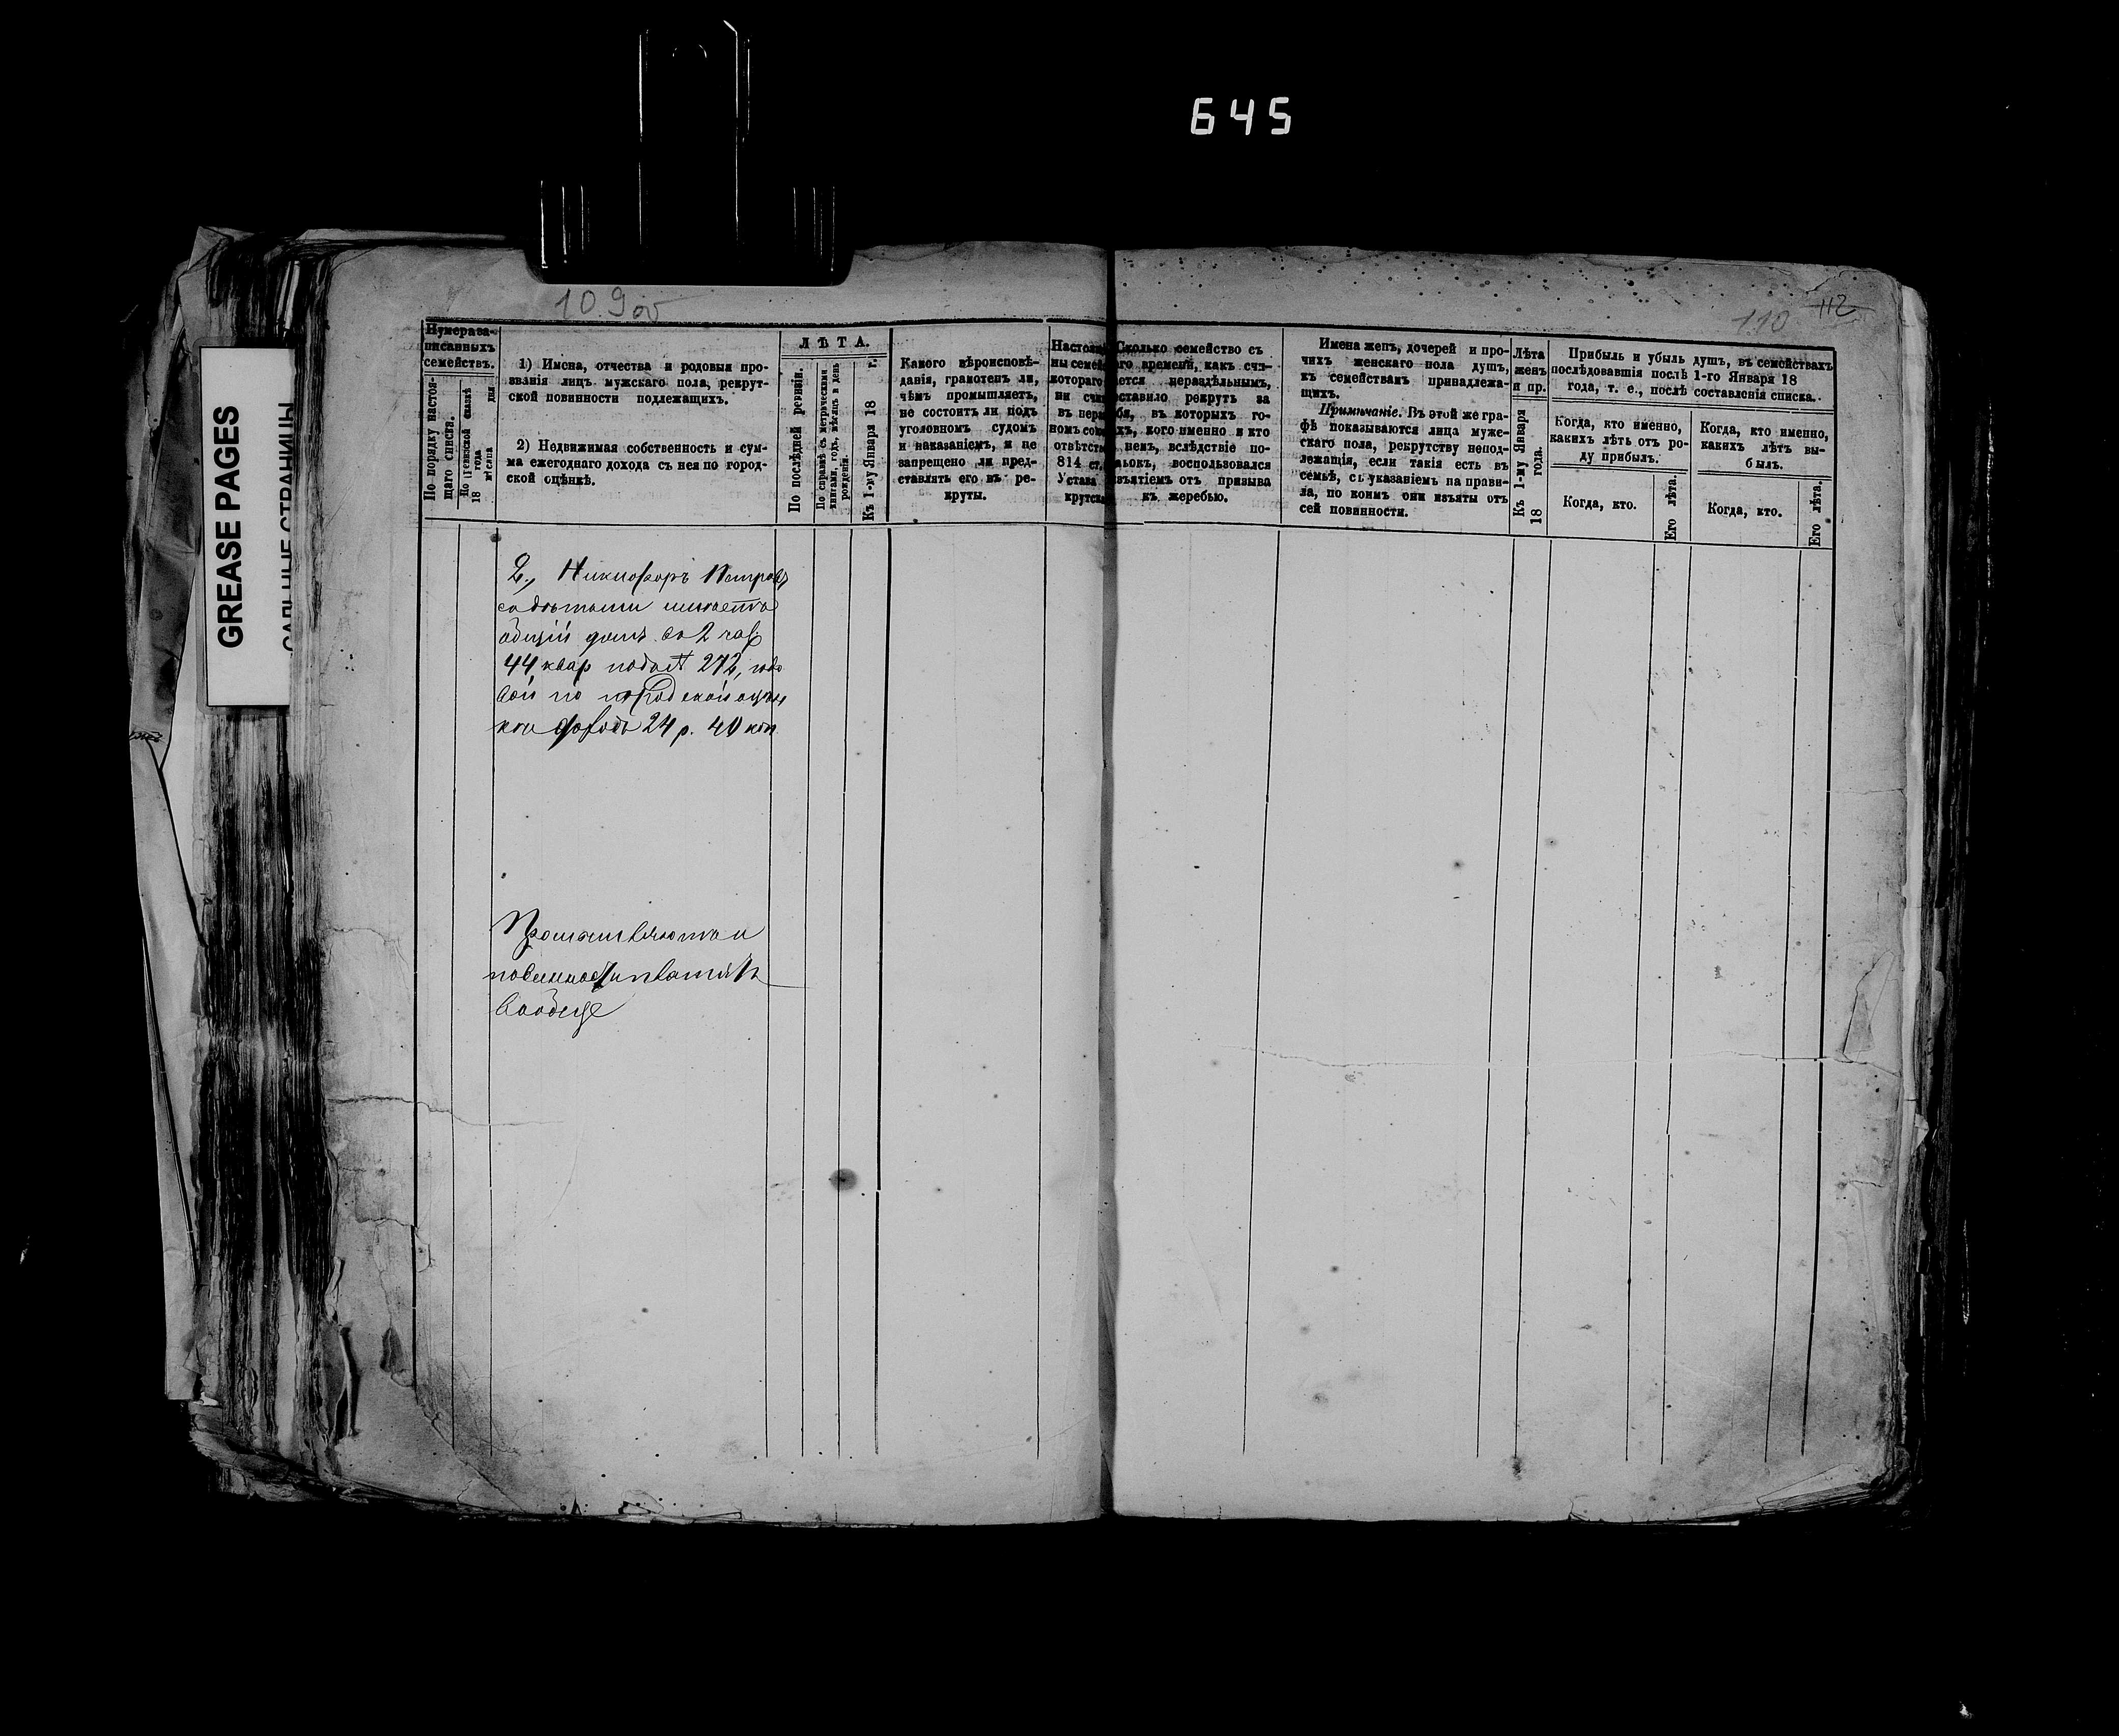 645
GREASE PAGES
САЛЬНЫЕ СТРАНИЦЫ
10.9 об
110
112
Нумера за-
писанныхъ
семействъ.
По порядку настоя-
щаго списка.
По Ревизской сказкѣ
18 года
мѣсяца дня
1) Имена, отчества и родовыя про-
званія лицъ мужскаго пола, рекрут-
ской повинности подлежащихъ.
2) Недвижимая собственность и сум-
ма ежегоднаго дохода съ нея по город-
ской оцѣнкѣ.
ЛѢТА.
По послѣдней ревизіи.
По справкѣ съ метрическими
книгами, годъ, мѣсяцъ и день
рожденія.
Къ 1-му Января 18 г.
Какого вѣроисповѣ-
данія, грамотенъ ли,
чѣмъ промышляетъ,
не состоитъ ли подъ
уголовномъ судомъ
и наказаніемъ, и не
запрещено ли пред-
ставлять его въ ре-
круты.
Настоя
ны семе
котораго
ни счи
въ нера
номъ сою
отвѣтств
814 ст.
Устава
крутска
Сколько семейство съ
аго времени, какъ счи-
ется нераздѣльнымъ,
оставило рекрутъ за
бя, въ которыхъ го-
хъ, кого именно и кто
немъ, вслѣдствіе по-
ьокъ, воспользовался
изъятіемъ отъ призыва
къ жеребью.
Имена женъ, дочерей и про-
чихъ женскаго пола душъ,
къ семействамъ принадлежа-
щихъ.
Примѣчаніе. Въ этой же гра-
фѣ показываются лица муже-
скаго пола, рекрутству непод-
лежащія, если такія есть въ
семьѣ, съ указаніемъ на прави-
ла, по коимъ они изъяты отъ
сей повинности.
Лѣта
женъ
и пр.
Къ 1-му Января
18 года.
Прибыль и убыль душъ, въ семействахъ
послѣдовавшія послѣ 1-го Января 18
года, т. е., послѣ составленія списка.
Когда, кто именно,
какихъ лѣтъ отъ ро-
ду прибылъ.
Когда, кто именно,
какихъ лѣтъ вы-
былъ.
Когда, кто.
Его лѣта.
Когда, кто.
Его лѣта.
2., Никифоръ Петровъ
съ дѣтьми имѣетъ
общій домъ во 2 час
44, квар подъ № 272, годо
вой по городской оцѣн
ки доходъ 24 р. 40 коп
повинности платятъ
вообще